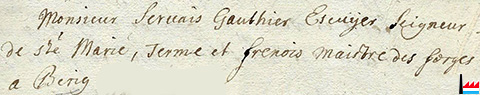 Monsieur Servais Gauthier Escuijer Seigneur
de ste Marie, Terme et frenois maistre des forges
a Berig